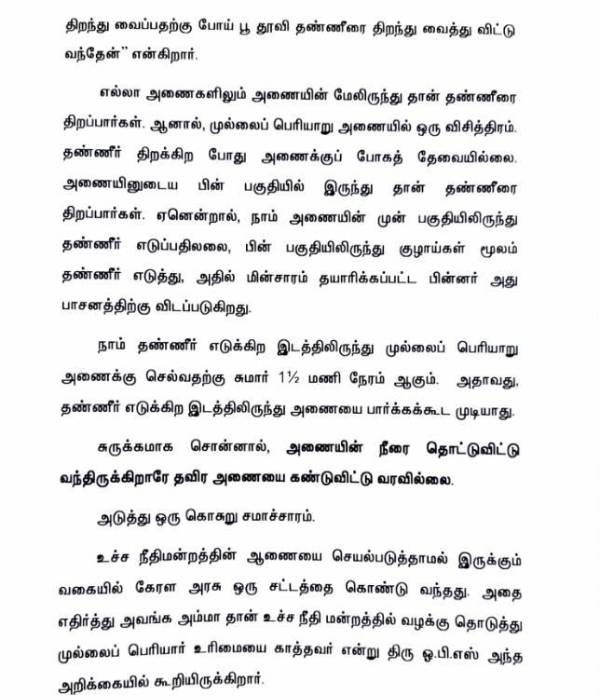 திறந்து வைப்பதற்கு போய் பூ தூவி தண்ணீரை திறந்து வைத்து விட்டு
வந்தேன்" என்கிறார்.
எல்லா அணைகளிலும் அணையின் மேலிருந்து தான் தண்ணீரை
திறப்பார்கள். ஆனால், முல்லைப் பெரியாறு அணையில் ஒரு விசித்திரம்.
தண்ணீர் திறக்கிற போது அணைக்குப் போகத் தேவையில்லை.
அணையினுடைய பின் பகுதியில் இருந்து தான் தண்ணீரை
திறப்பார்கள். ஏனென்றால், நாம் அணையின் முன் பகுதியிலிருந்து
தண்ணீர் எடுப்பதிலலை, பின் பகுதியிலிருந்து குழாய்கள் மூலம்
தண்ணீர் எடுத்து, அதில் மின்சாரம் தயாரிக்கப்பட்ட பின்னர் அது
பாசனத்திற்கு விடப்படுகிறது.
நாம் தண்ணீர் எடுக்கிற இடத்திலிருந்து முல்லைப் பெரியாறு
அணைக்கு செல்வதற்கு சுமார் 1½ மணி நேரம் ஆகும். அதாவது,
தண்ணீர் எடுக்கிற இடத்திலிருந்து அணையை பார்க்கக்கூட முடியாது.
சுருக்கமாக சொன்னால், அணையின் நீரை தொட்டுவிட்டு
வந்திருக்கிறாரே தவிர அணையை கண்டுவிட்டு வரவில்லை.
அடுத்து ஒரு கொசுறு சமாச்சாரம்.
உச்ச நீதிமன்றத்தின் ஆணையை செயல்படுத்தாமல் இருக்கும்
வகையில் கேரள அரசு ஒரு சட்டத்தை கொண்டு வந்தது. அதை
எதிர்த்து அவங்க அம்மா தான் உச்ச நீதி மன்றத்தில் வழக்கு தொடுத்து
முல்லைப் பெரியார் உரிமையை காத்தவர் என்று திரு ஓ.பி.எஸ் அந்த
அறிக்கையில் கூறியிருக்கிறார்.